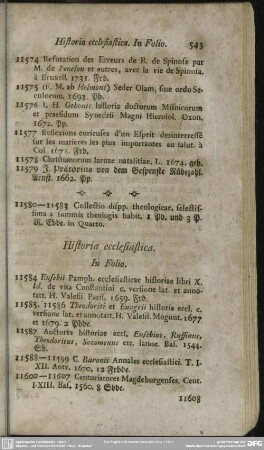 Historia ecclesiastica. In Folio. 543
11574 Refutation des Erreurs de B. de Spinosa par
M. de Fenelon et autres, avec la vie de Spinosa.
à Bruxell. 1731. Frb.
11575 (F. M. ab Helmont) Seder Olam, sive ordo Se-
culorum. 1693. Pb.
11576 I. H. Ottonis historia doctorum Misnicorum
et praesidum Synedrii Magni Hierosol. Oxon.
1672. Pp.
11577 Reflexions curieuses d'un Esprit desinterressé
sur les matieres les plus importantes au salut. à
Col. 1678. Frb.
11578 Christianorum larvae natalitiae. L. 1674. geh.
11579 J. Prätorius von dem Gespenste Rübezahl.
Arnst. 1662. Pp.
11580—11583 Collectio disp. theologicar. selectis-
sima a summis theologis habit. 1 Pb. und 3 P.
R. Ebde. in Quarto.
Historia ecclesiastica.
In Folio.
11584 Eusebii Pamph. ecclesiasticae historiae libri X.
Id. de vita Constantini c. versione lat. et anno-
tatt. H. Valesii. Paris. 1659. Frb.
11585. 11586 Theodoriti et Euagrii historia eccl. c.
versione lat. et annotatt. H. Valesii. Mogunt. 1677
et 1679. 2 Pbde.
11587 Auctores historiae eccl. Eusebius, Ruffinus,
Theodoritus, Sozomenus etc. latine. Bas. 1544.
11588—11599 C. Baronii Annales ecclesiastici. T. I-
XII. Antv. 1670. 12 Frbde.
11600—11607 Centuriatores Magdeburgenses. Cent.
I-XIII. Bas. 1560. 8 Ebde.
11608